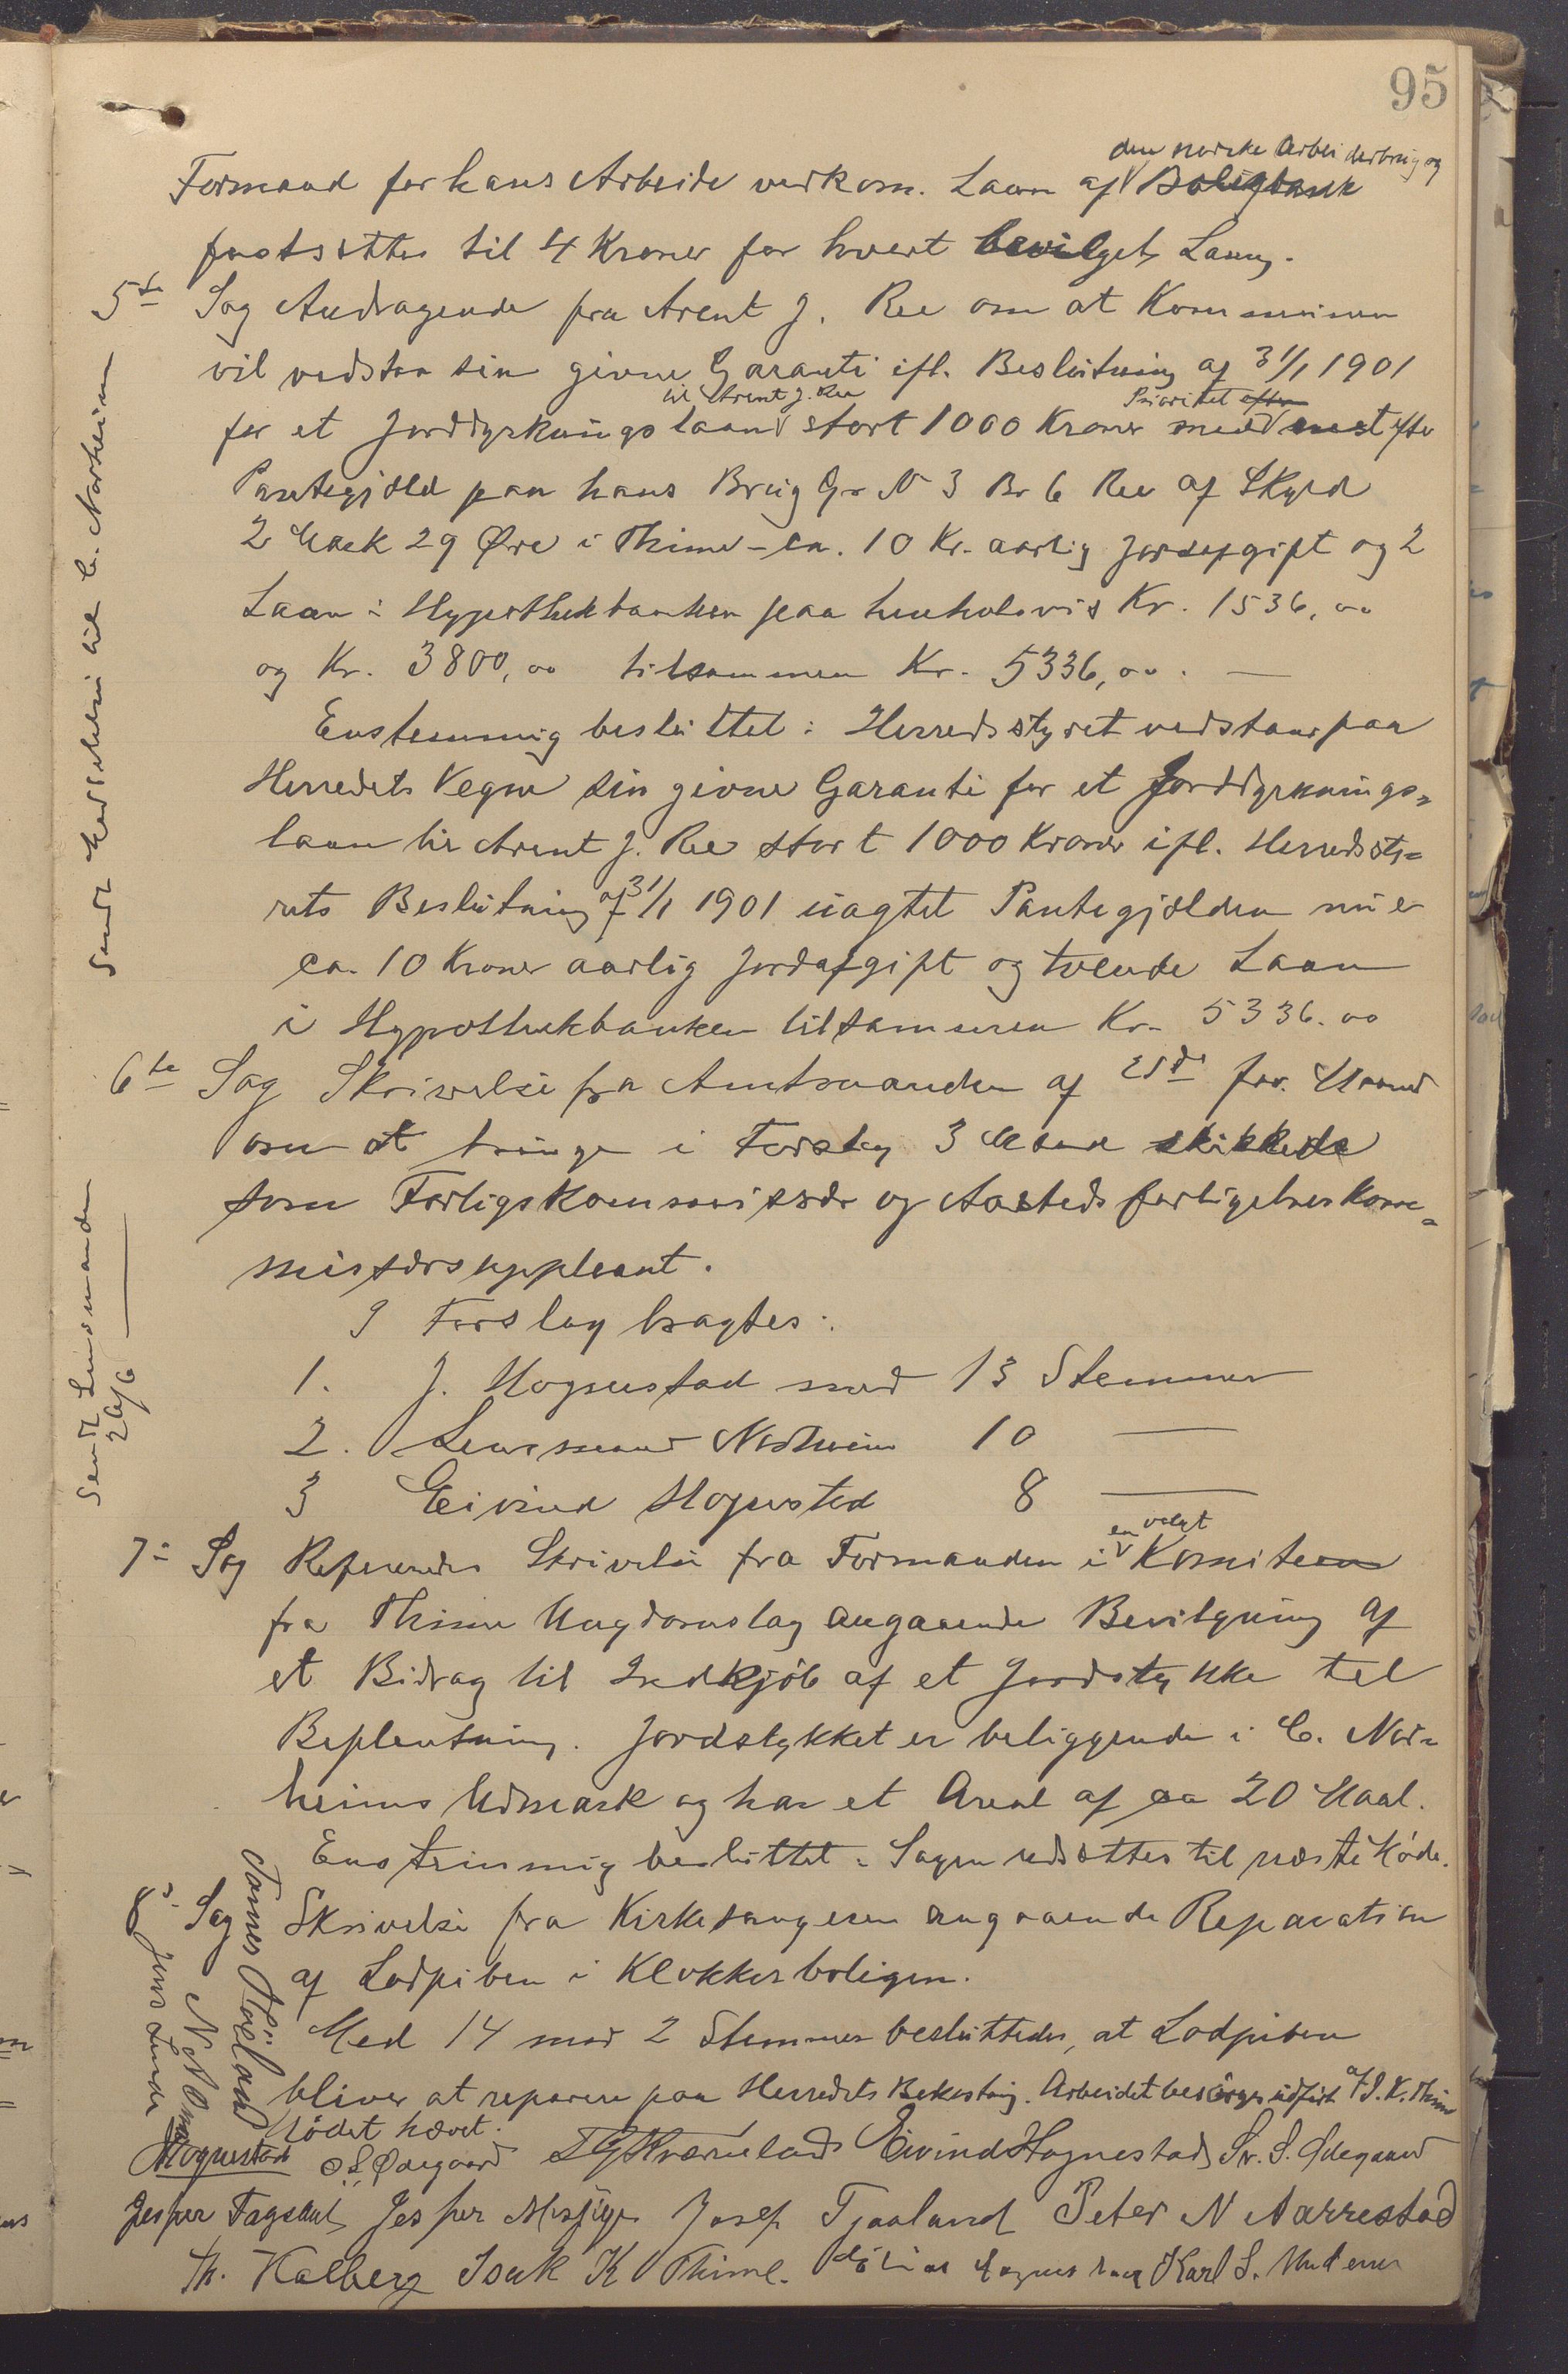 95
den norske Arbeiderbrug og
Formand for hans Arbeide vedkom. Laan af Boligbank
fastsættes til 4 Kroner for hvert bevilget Laan.
5te Sag Andragende fra Arent J. Ree om at Kommunen
vil vedstaa sin givne Garanti ifl. Beslutning af 31/1 1901
til Arent J. Ree Prioritet efter
for et Jorddyrkningslaan stort 1000 Kroner med næst efter
Pantegjæld paa hans Brug Gr N 3 Br 6 Ree af Skyld
2 Mark 29 Øre i Thime - ca. 10 Kr. aarlig Jordafgift og 2
Laan i Hypothekbanken paa henholdsvis Kr. 1536,00
og Kr. 3800,00 tilsammen Kr. 5336,00. —
Enstemmig besluttet: Herredsstyret vedstaar paa
Herredets Vegne sin givne Garanti for et Jorddyrknings-
laan til Arent J. Ree stort 1000 Kroner ifl. Herredssty-
rets Beslutning af 31/1 1901 uagtet Pantegjælden nu er
ca. 10 Kroner aarlig Jordafgift og tvende Laan
i Hypothekbanken tilsammen Kr. 5336.00
Sendt Meddelelse til C. Norheim
6te Sag Skrivelse fra Amtmanden af for. Maaned
om at bringe i Forslag 3 Mænd skikkede
som Forligskommissær og Aastedsforligelseskom-
missærsuppleant.
I Forslag bragtes:
1. J. Hognestad med 13 Stemmer
2. Lensmand Norheim 10 —
3 Eivind Hognestad 8 —
Sendt Lensmanden
26/6
en valgt
7de Sag Refereredes Skrivelse fra Formanden i Komiteen
fra Thime Ungdomslag angaaende Bevilgning af
et Bidrag til Indkjøb af et Jordstykke til
Beplantning. Jordstykket er beliggende i C. Nor-
heims Udmark og har et Areal af ca 20 Maal.
Enstemmig besluttet: Sagen udsættes til næste Møde.
8de Sag Skrivelse fra Kirkesangeren angaaende Reparation
af Lodpiben i Klokkerboligen.
Med 14 mod 2 Stemmer besluttedes, at Lodpiben
bliver at reparere paa Herredets Bekostning. Arbeidet besørges udført af I. K. Thime
Mødet hævet.
Hognestad O. S. Ødegaard Kværneland Eivind Hognestad Sv. S. Ødegaard
Jesper Fagerland Jesper Josef Tjaaland Peter N Aarrestad
Th. Kalberg Isak K Thime. Karl S. Undem
Jens Lende